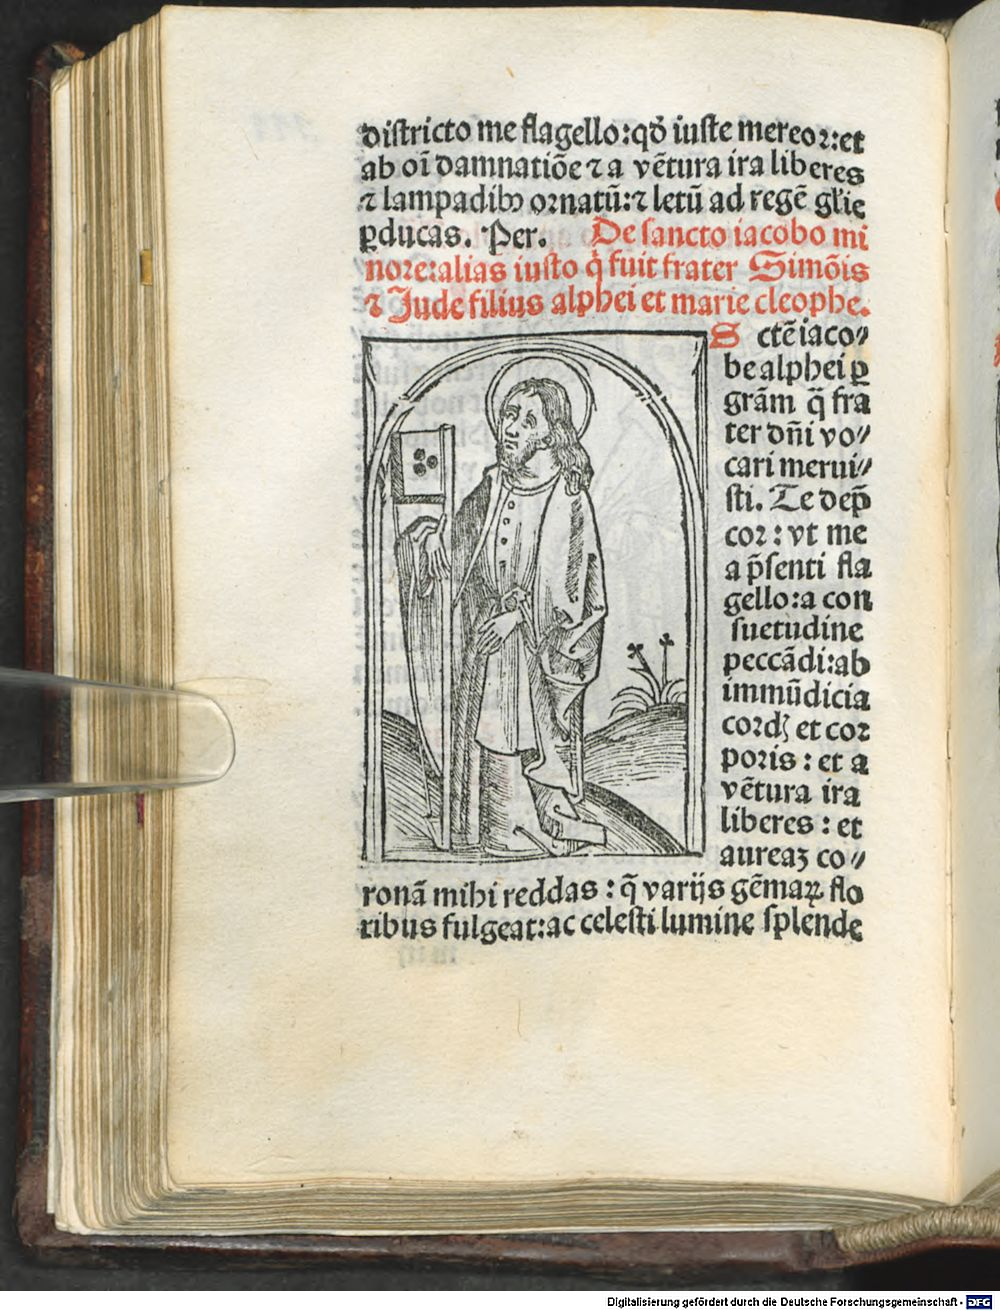 diſtricto me flagello:qð iuſte mereoꝛ:et
ab oĩ damnatiõe ⁊ a vẽtura ira liberes
⁊ lampadibꝰ oꝛnatũ:⁊ letũ ad regẽ gl̃ie
ꝑducas. Per. De ſancto iacobo mi
noꝛe:alias iuſto q̃ fuit frater Simõis
⁊ Jude filius alphei et marie cleophe.
S ctẽ iaco⸗
be alphei ꝑ
grãm q̃ fra
ter dñi vo⸗
cari merui⸗
ſti. Te dep̃
coꝛ : vt me
a p̃ſenti fla
gello:a con
ſuetudine
peccãdi:ab
immũdicia
coꝛdꝭ et coꝛ
poꝛis : et a
vẽtura ira
liberes : et
aureaꝫ co⸗
ronã mihi reddas : q̃ varijs gẽmaꝝ flo
ribus fulgeat:ac celeſti lumine ſplende
Digitalisierung gefördert durch die Deutsche Forschungsgemeinschaft - DFG